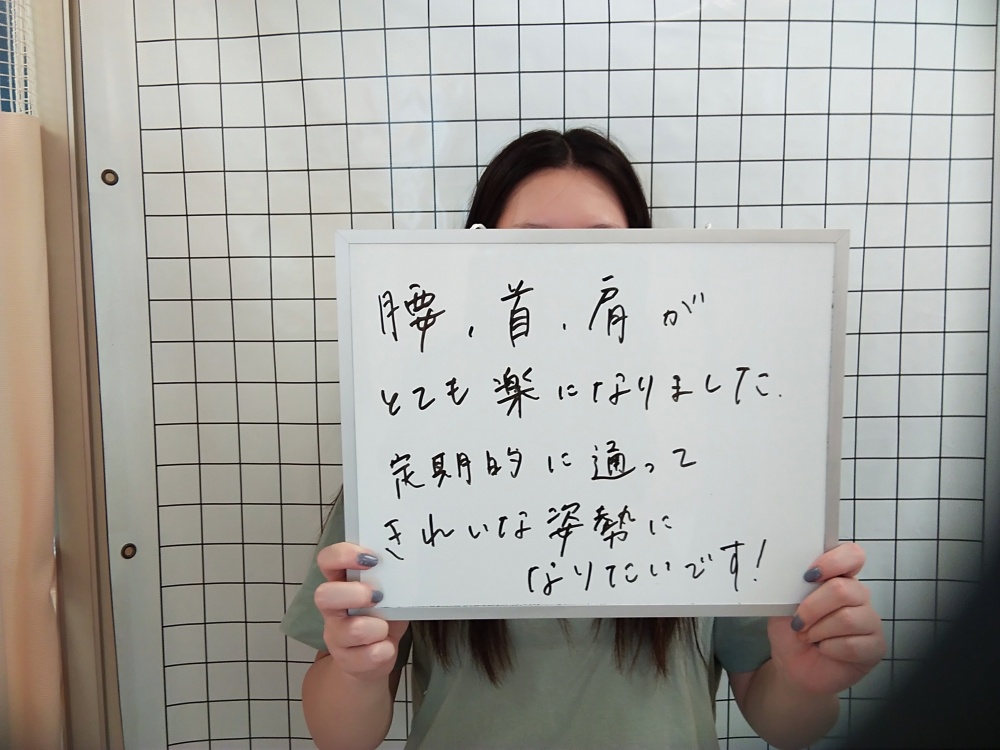 腰、首、肩が
とても楽になりました.
定期的に通って
きれいな姿勢に
なりたいです!